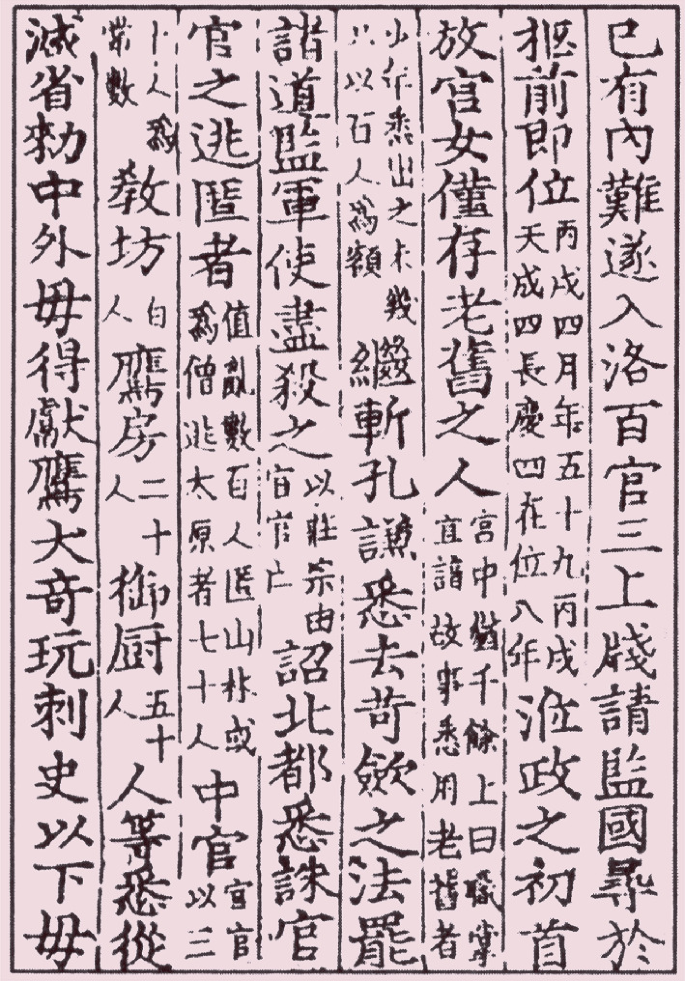 已有內難遂入洛百官三上牋請監國尋於
柩前即位丙戌四月年五十九丙戌天成四長慶四在位八年涖政之初首
放官女僅存老舊之人宮中千餘上曰職掌宜諳故事悉用老舊者
少年悉出之未幾只以百人為額繼斬孔謙悉去苛歛之法罷
諸道監軍使盡殺之以莊宗由宦官亡詔北都悉誅宦
官之逃匿者值亂數百人匿山林或為僧逃太原者七十人中官宦官以三
十人為常數教坊百人鷹房二十人御厨五十人人等悉從
減省勑中外毋得獻鷹犬奇玩刺史以下毋